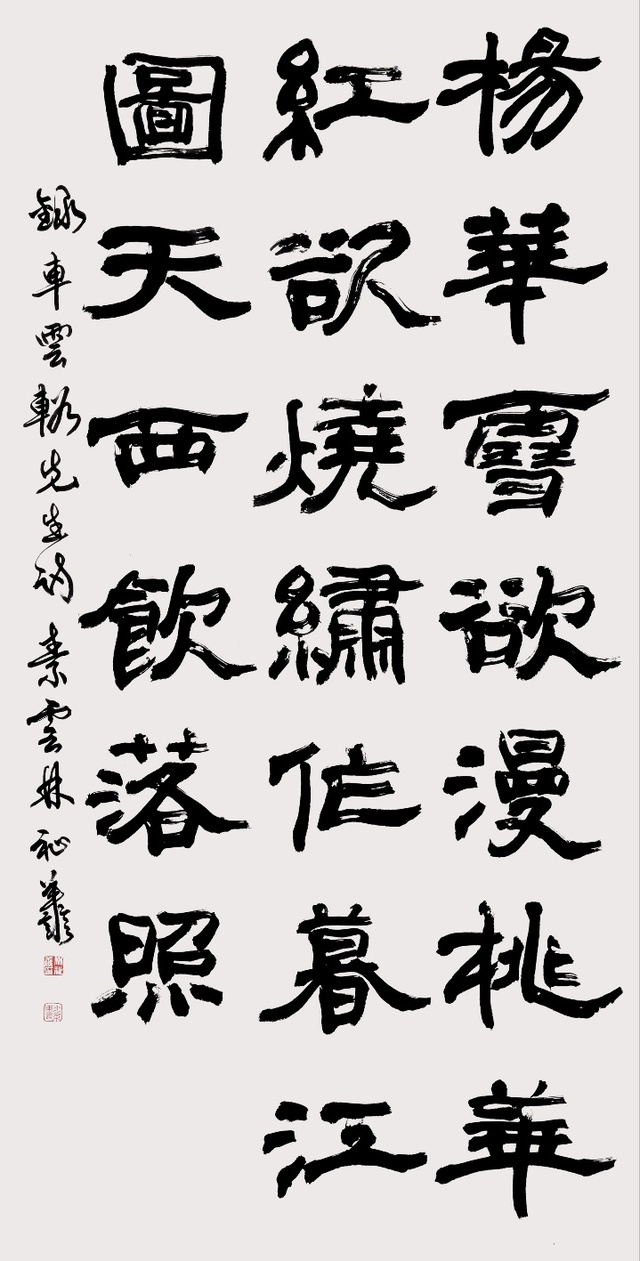 楊華雪欲漫桃華
紅欲燒繡作暮江
圖天西飲落照
錄車雲輅先生詞素雲林祉義